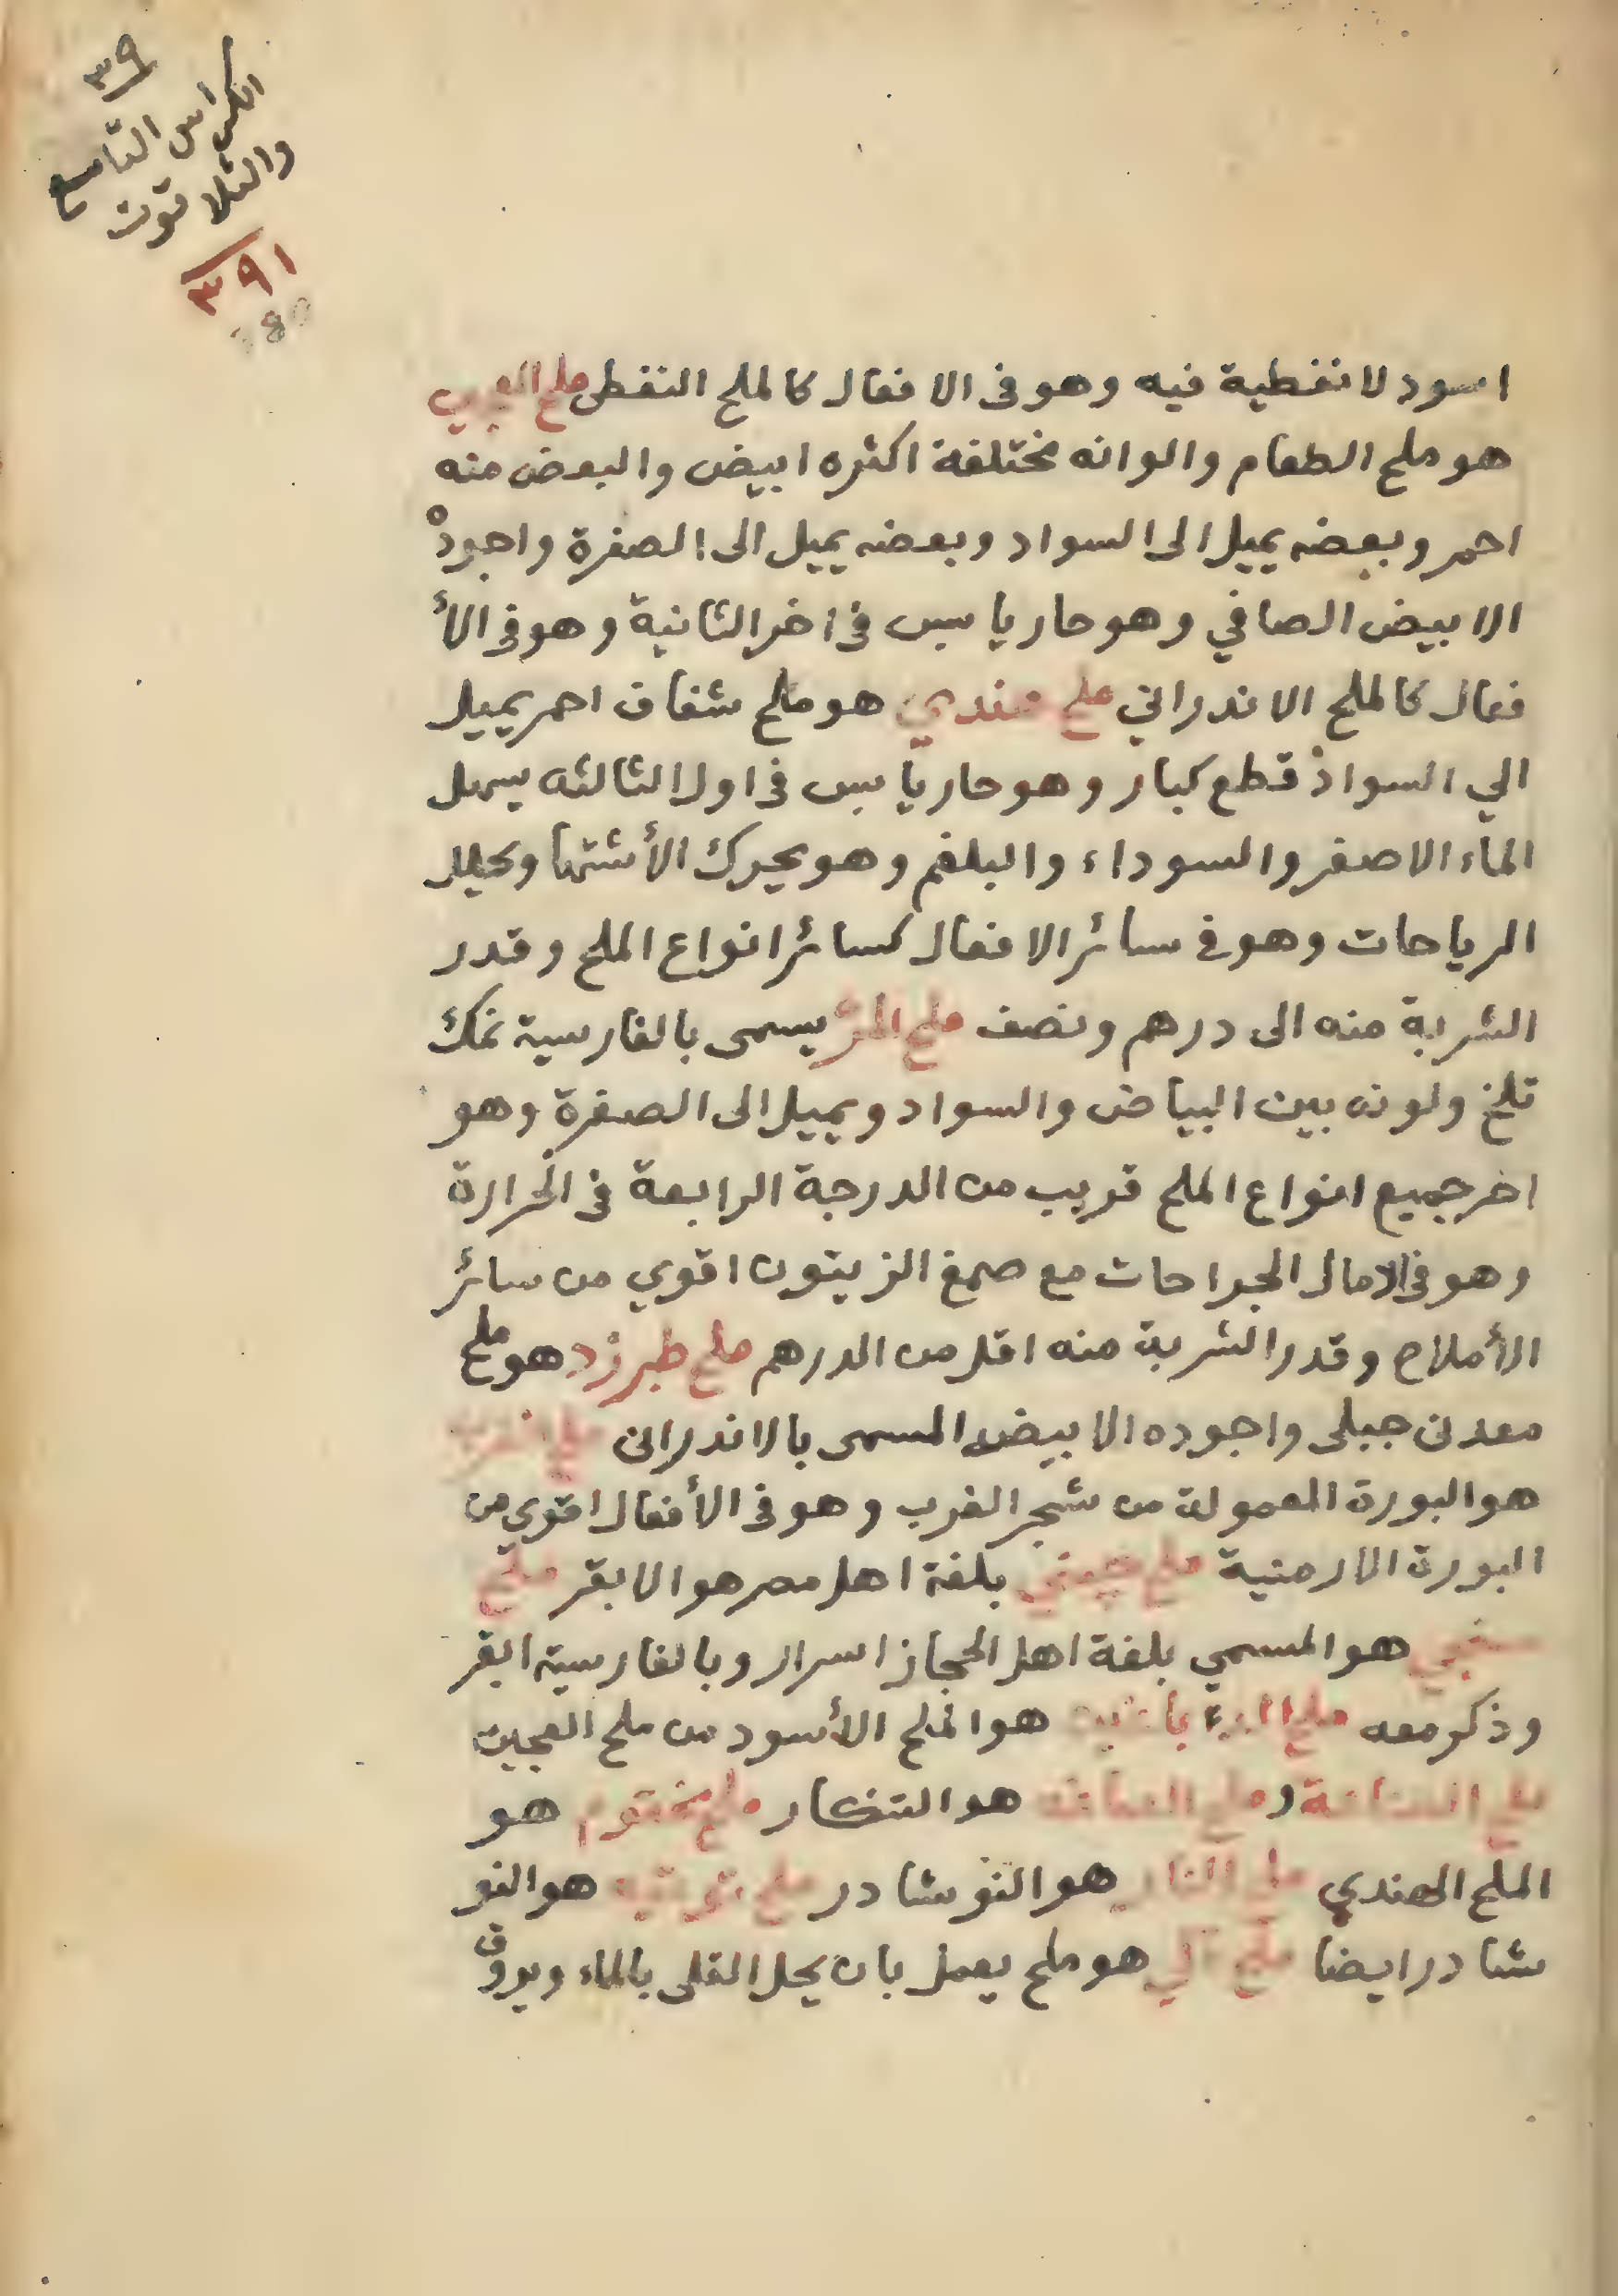 ٣٩
الكراس التاسع
والثلاثون
٣٩١
اسود لا نفطية فيه وهو فى الافعال كالملح النفطى ملح العجين
هو ملح الطعام والوانه مختلفة اكثره ابيض والبعض منه
احمر وبعضه يميل الى السواد وبعضه يميل الى الصفرة واجوده
الابيض الصافي وهو حار يابس فى اخر الثانية وهو فى الأ
فعال كالملح الاندراني ملح هندي هو ملح شفاف احمر يميل
الي السواد قطع كبار وهو حار يابس فى اول الثالثه يسهل
الماء الاصفر والسوداء والبلغم وهو يحرك الأشتها ويحلل
الرياحات وهو فى سائر الافعال كسائر انواع الملح وقدر
الشربة منه الى درهم ونصف ملح المرّ يسمى بالفارسية نمك
تلخ ولونه بين البياض والسواد ويميل الى الصفرة وهو
اخر جميع انواع الملح قريب من الدرجة الرابعة فى الحرارة
وهو فى الامال الجراحات مع صمغ الزيتون اقوي من سائر
الأملاح وقدر الشربة منه اقل من الدرهم ملح طبرزد هو ملح
معدنى جبلى واجوده الابيض المسمى بالاندرانى ملح الغرب
هو البورة المعمولة من شجر الغرب وهو فى الأفعال اقوي من
البورة الارمنية ملح چيني بلغة اهل مصر هو الابقر ملح
سنجي هو المسمي بلغة اهل الحجاز اسرار وبالفارسية ابقر
وذكر معه ملح هو الملح الأسود من ملح العجين
ملح الصناعة وملح الصاغه هو التنكار ملح مختوم هو
الملح الهندي ملح النار هو النوشادر ملح هو النو
شادر ايضا ملح هو ملح يعمل بان يحل القلى بالماء ويروق